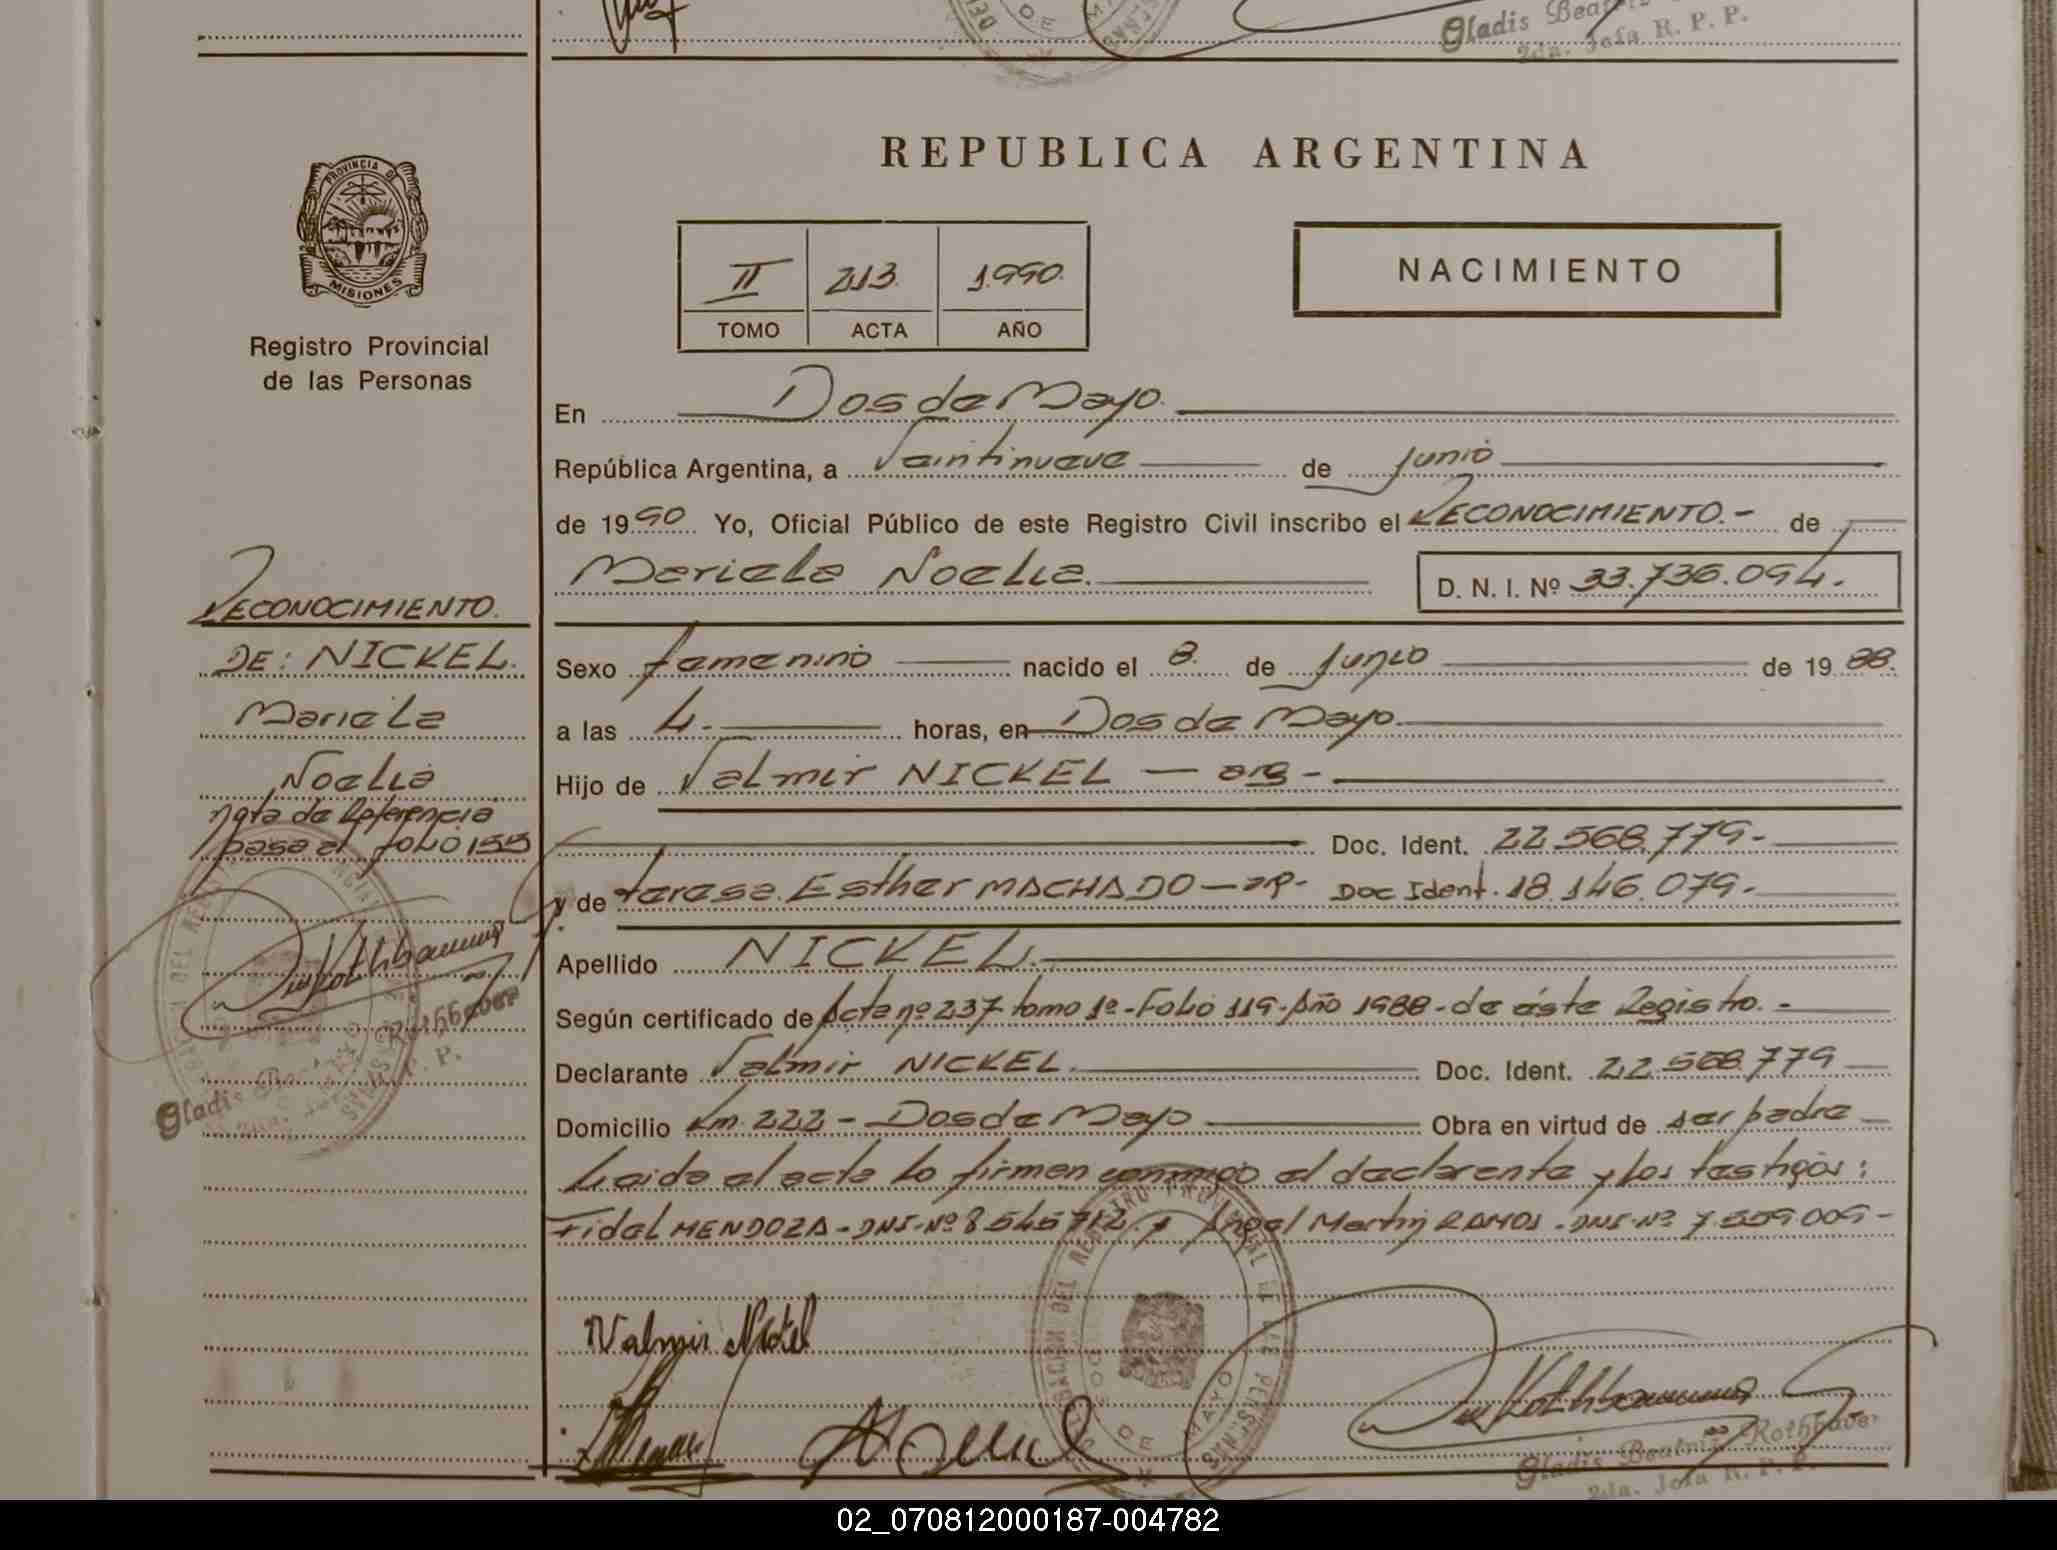 Gladis
2da. Jefa R. P. P.
PROVINCIA DE
MISIONES
Registro Provincial
de las Personas
REPUBLICA ARGENTINA
II 213. 1.990.
TOMO ACTA AÑO
NACIMIENTO
En Dos de Mayo.
República Argentina, a Veintinueve de junio
de 1990 Yo, Oficial Público de este Registro Civil inscribo el RECONOCIMIENTO.- de
Mariela Noelia. D. N. I. Nº 33.736.094.
RECONOCIMIENTO.
DE: NICKEL.
Mariela
Noelia
nota de Referencia
pasa al folio 155
Sexo femenino nacido el 8. de junio de 1988.
a las 4. horas, en Dos de Mayo.
Hijo de Valmir NICKEL — arg -
Doc. Ident. 22.568.779-
y de Teresa Esther MACHADO — ar- Doc Ident. 18.146.079.
Apellido NICKEL.
Según certificado de Acta nº 237 tomo 1º-Folio 119-Año 1988-de éste Registro.-
Declarante Valmir NICKEL. Doc. Ident. 22.568.779
Domicilio Km. 222 - Dos de Mayo Obra en virtud de ser padre
Leida el acta lo firman conmigo el declarante y los testigos:
Fidel MENDOZA-DNI-Nº 8.545.712. y Angel Martin RAMOS.-DNI-Nº 7.559.009-
Gladis Rothbauer
Valmir Nickel
DE MAYO
Gladis Beatriz Rothbauer
2da. Jefa R. P. P.
02_070812000187-004782